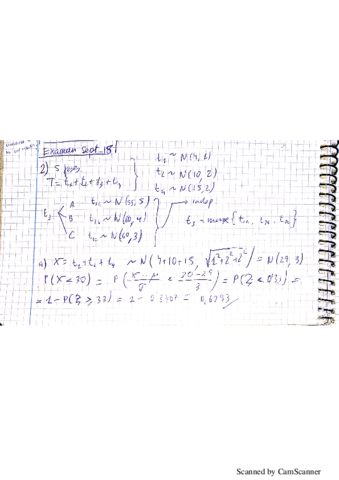 Examen Sept-18
2) 5
T = t₁ + t₂ + t₃ + t₄
t₁ ~ N(4, 1)
t₂ ~ N(10, 2)
t₄ ~ N(15, 2)
t₃
A t₃ₐ ~ N(55, 5)
B ~ N(60, 4)
C ~ N(60, 3)
indep
t₃ =
a) X = t₁ + t₂ + t₄ ~ N(4+10+15, √1²+2²+2²) = N(29, 3)
P(X < 30) = P(X-μ/σ < 30-29/3) = P(Z < 0'33) =
= 1 - P(Z ≥ 33) = 1 - 0'3707 = 0,6293
Scanned by CamScanner